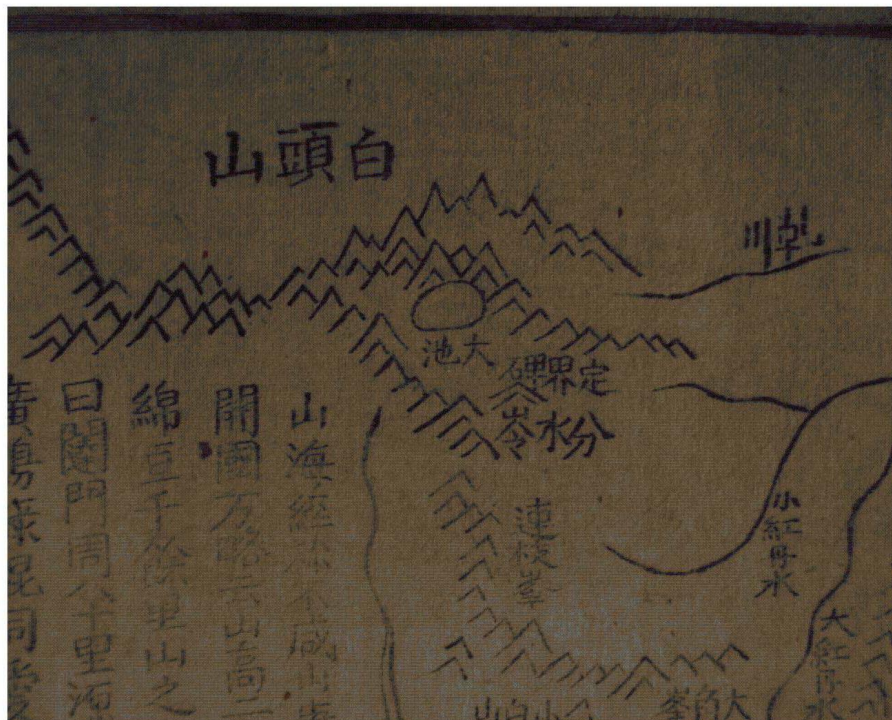 白頭山
乾川
大池
定界碑
分水岺
連枝峯
小紅丹水
大紅丹水
山海經
不咸山
開國方略云山高二
綿亘千餘里山之
曰闥門周八十里
小白山
大角峯